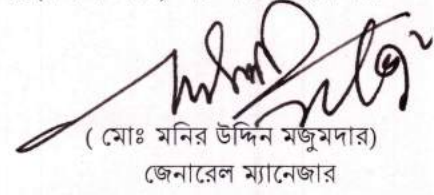 ( মোঃ মনির উদ্দিন মজুমদার)
জেনারেল ম্যানেজার